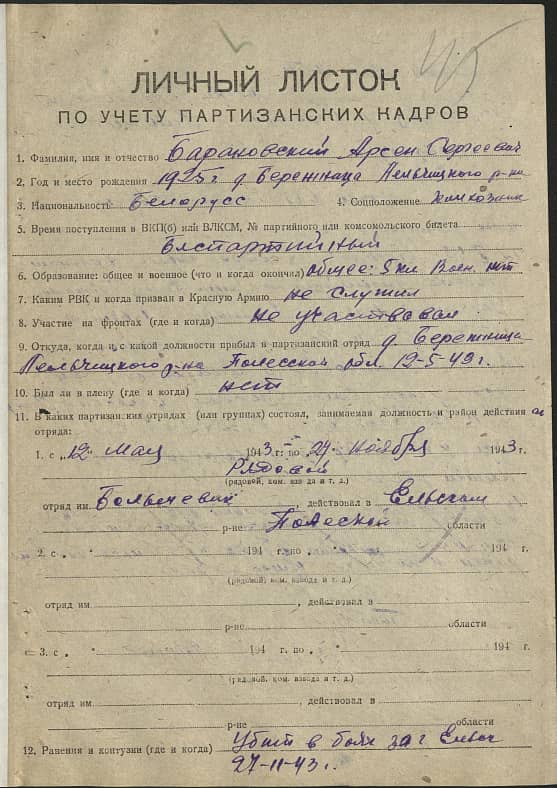 45
ЛИЧНЫЙ ЛИСТОК
ПО УЧЕТУ ПАРТИЗАНСКИХ КАДРОВ
1. Фамилия, имя и отчество Барановский Арсен Сергеевич
2. Год и место рождения 1925 г д Бережница Лельчицкого р-на
3. Национальность Белорусс 4. Соцположение
5. Время поступления в ВКП(б) или ВЛКСМ, № партийного или комсомольского билета
Беспартийный
6. Образование: общее и военное (что и когда окончил) общее: 5 кл Воен. нет
7. Каким РВК и когда призван в Красную Армию не служил
8. Участие на фронтах (где и когда) не участвовал
9. Откуда, когда и с какой должности прибыл в партизанский отряд д. Бережница
Лельчицкого р-на Полесской обл. 12-5-43 г.
10. Был ли в плену (где и когда) нет
11. В каких партизанских отрядах (или группах) состоял, занимаемая должность и район действия
отряда:
1. с „12" Мая 1943 г. по 27 Ноября 1943 г.
Рядовой
(рядовой, ком. взвода и т. д.)
отряд им Большевик, действовал в Ельском
р-не Полеской области
2. с „ " 194 г. по „ " 194 г.
(рядовой, ком. взвода и т. д.)
отряд им , действовал в
р-не области
3. с „ " 194 г. по „ " 194 г.
(рядовой, ком. взвода и т. д.)
отряд им , действовал в
р-не области
12. Ранения и контузии (где и когда) Убит в бою за г Ельск
27-11-43 г.